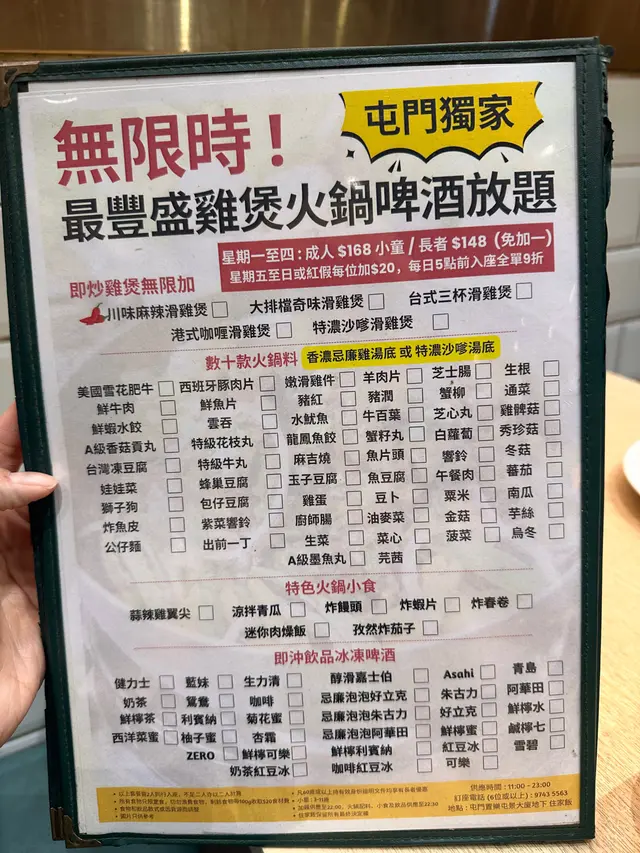 屯門獨家
無限時！
最豐盛雞煲火鍋啤酒放題
星期一至四：成人 $168 小童 / 長者 $148 (免加一)
星期五至日或紅假每位加$20，每日5點前入座全單9折
即炒雞煲無限加
川味麻辣滑雞煲 大排檔奇味滑雞煲 台式三杯滑雞煲
港式咖喱滑雞煲 特濃沙嗲滑雞煲
數十款火鍋料 香濃忌廉雞湯底 或 特濃沙嗲湯底
美國雪花肥牛 西班牙豚肉片 嫩滑雞件 羊肉片 芝士腸 生根
鮮牛肉 鮮魚片 豬紅 豬潤 蟹柳 通菜
鮮蝦水餃 雲吞 水魷魚 牛百葉 芝心丸 雞髀菇
A級香菇貢丸 特級花枝丸 龍鳳魚餃 蟹籽丸 白蘿蔔 秀珍菇
台灣凍豆腐 特級牛丸 麻吉燒 魚片頭 響鈴 冬菇
娃娃菜 蜂巢豆腐 玉子豆腐 魚豆腐 午餐肉 蕃茄
獅子狗 包仔豆腐 雞蛋 豆卜 粟米 南瓜
炸魚皮 紫菜響鈴 廚師腸 油麥菜 金菇 芋絲
公仔麵 出前一丁 生菜 菜心 菠菜 烏冬
A級墨魚丸 芫茜
特色火鍋小食
蒜辣雞翼尖 涼拌青瓜 炸饅頭 炸蝦片 炸春卷
迷你肉燥飯 孜然炸茄子
即沖飲品冰凍啤酒
健力士 藍妹 生力清 醇滑嘉士伯 Asahi 青島
奶茶 鴛鴦 咖啡 忌廉泡泡好立克 朱古力 阿華田
鮮檸茶 利賓納 菊花蜜 忌廉泡泡朱古力 好立克 鮮檸水
西洋菜蜜 柚子蜜 杏霜 忌廉泡泡阿華田 鮮檸蜜 鹹檸七
ZERO 鮮檸可樂 鮮檸利賓納 紅豆冰 雪碧
奶茶紅豆冰 咖啡紅豆冰 可樂
供應時間：11:00 - 23:00
訂座電話 (6位或以上)：9743 5563
地點：屯門置樂屯景大廈地下 住家飯